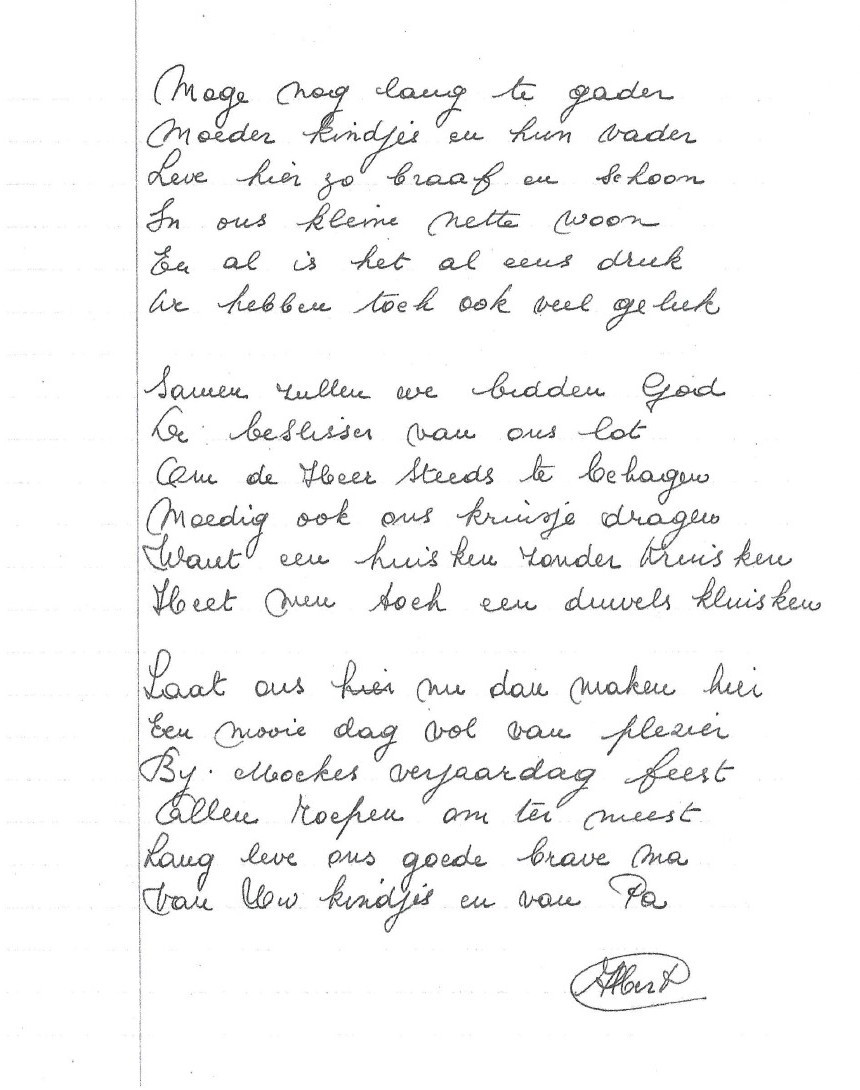 Moge nog lang te gader
Moeder kindjes en hun vader
Leve hier zo braaf en schoon
In ons kleine nette woon
En al is het al eens druk
We hebben toch ook veel geluk
Samen zullen we bidden God
De beslisser van ons lot
Om de Heer steeds te behagen
Moedig ook ons kruisje dragen
Want een huisken zonder kruisken
Heet men toch een duvels kluisken
Laat ons hier nu dan maken hier
Een mooie dag vol van plezier
By Moekes verjaardag feest
Allen roepen om ter meest
Lang leve ons goede brave Ma
Van Uw kindjes en van Pa
Albert